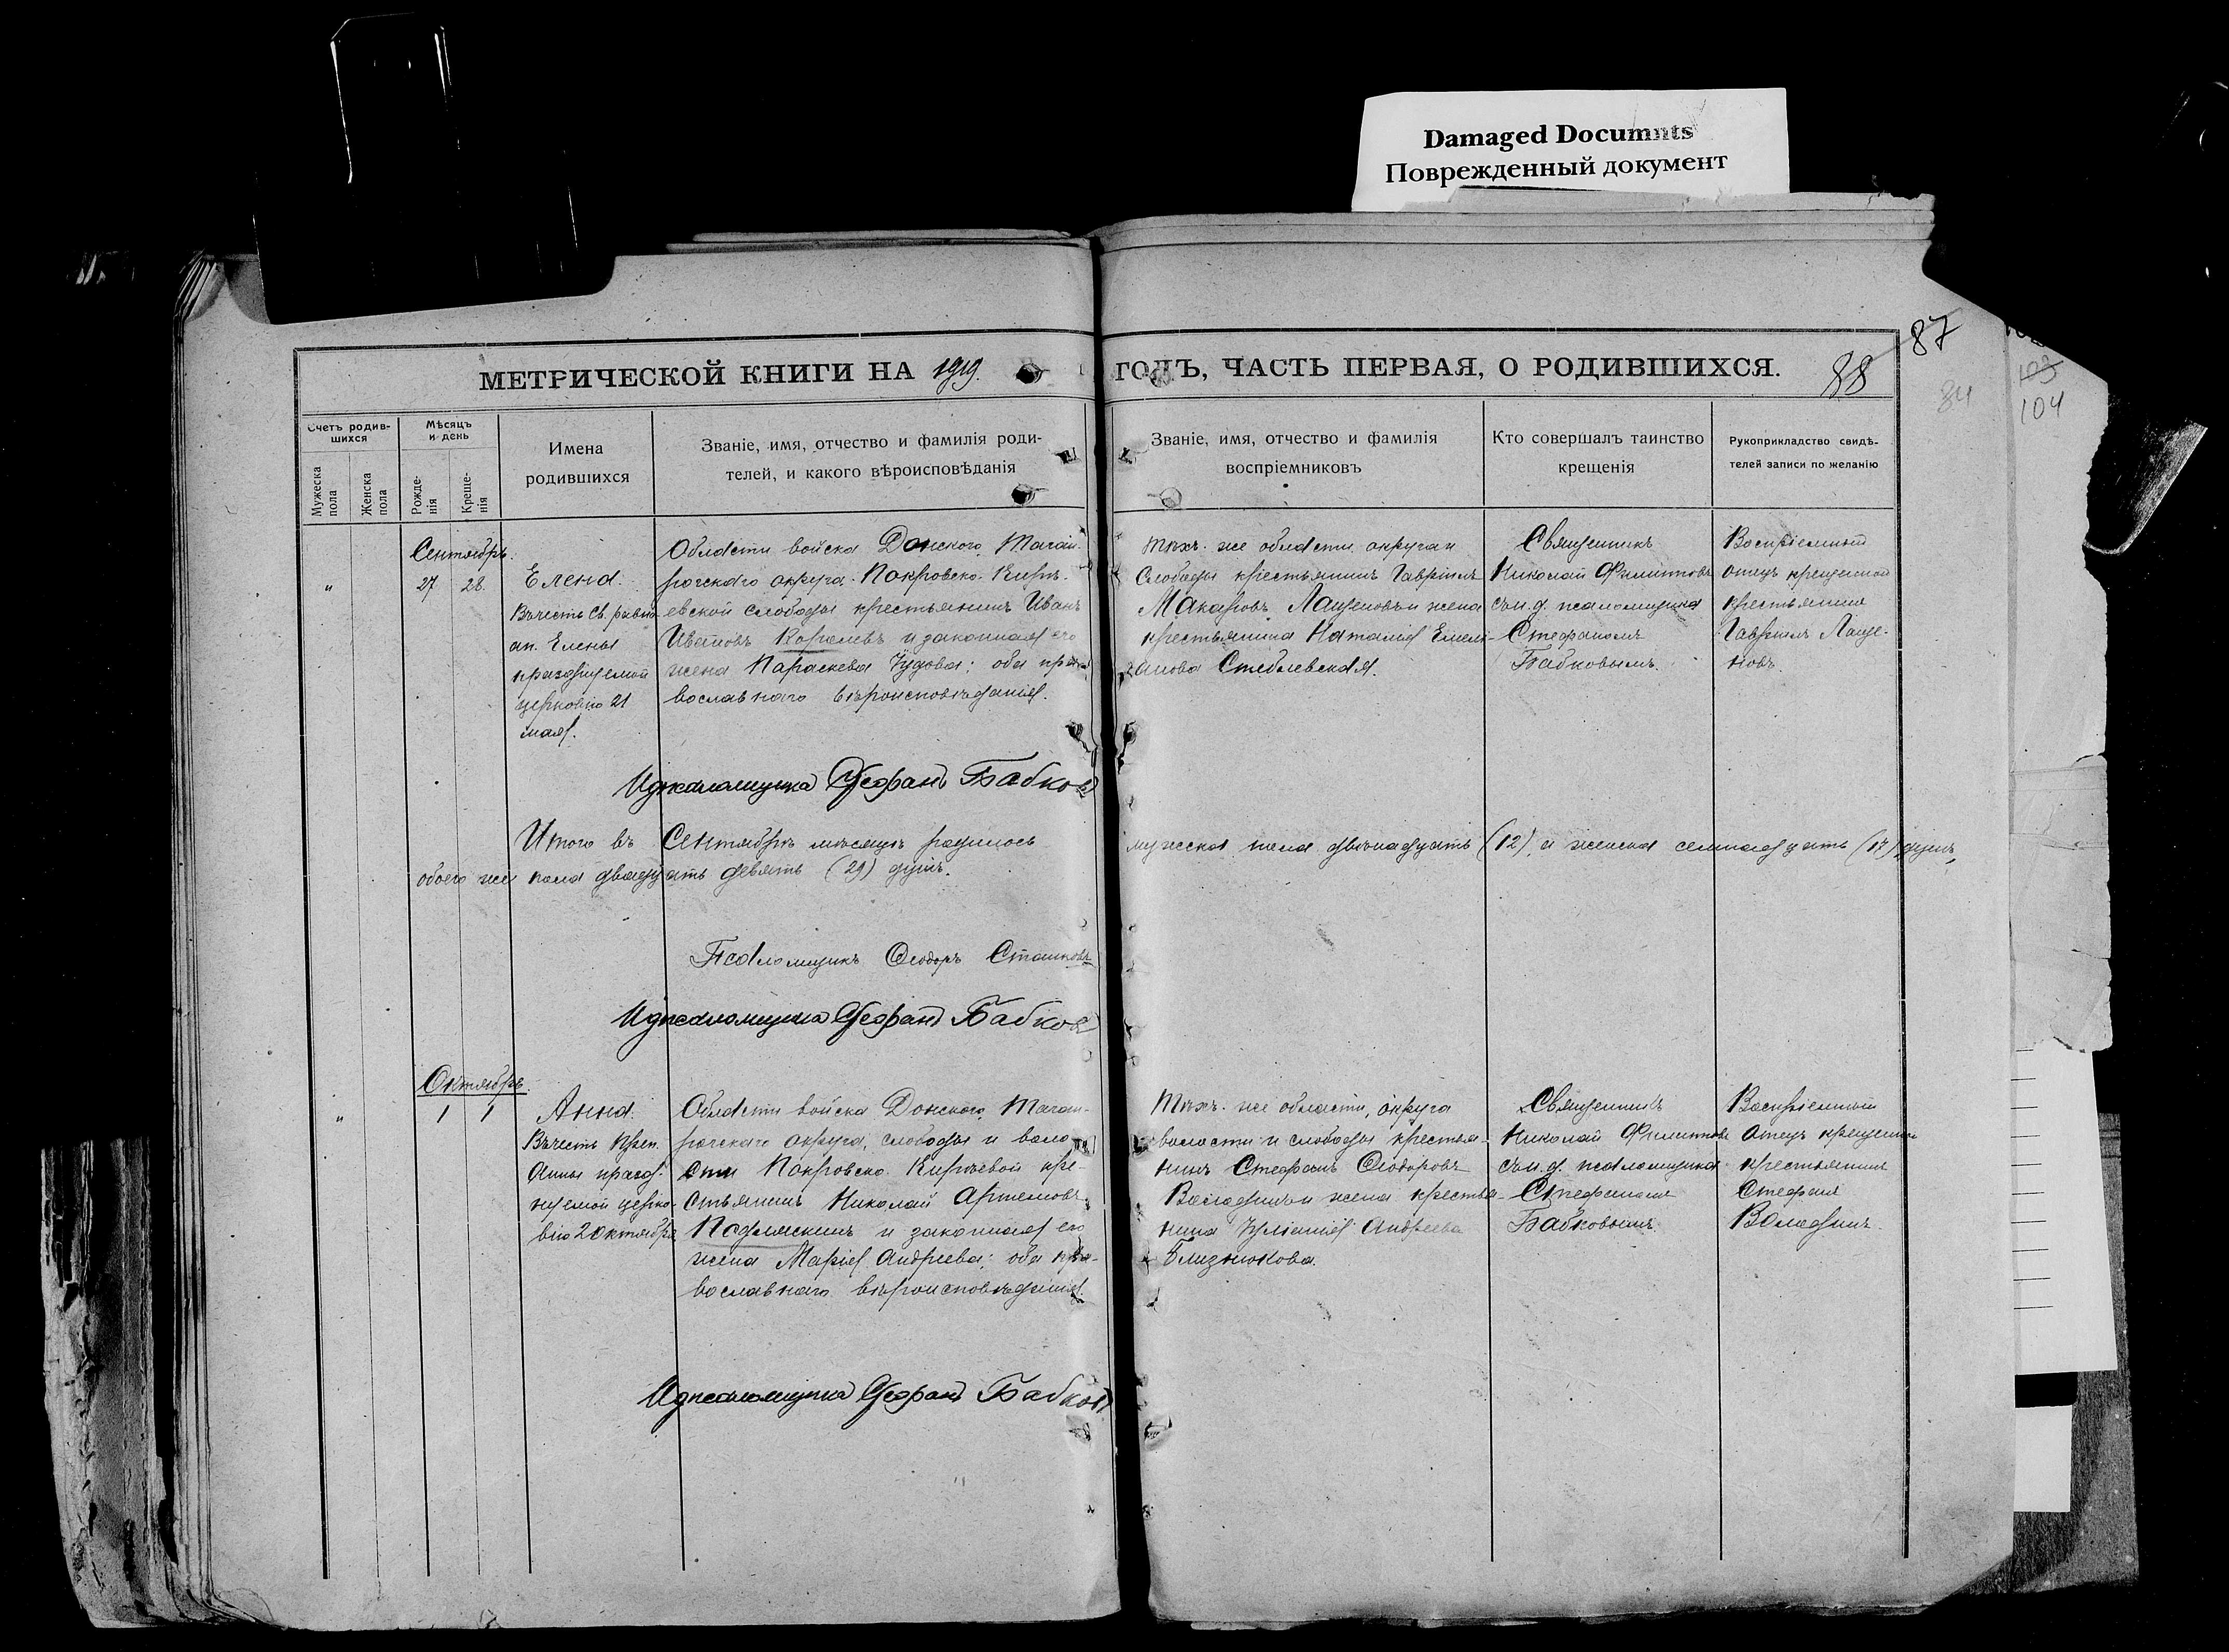 Damaged Documnts
Поврежденный документ
87
88
84
103
104
МЕТРИЧЕСКОЙ КНИГИ НА 1919 ГОДЪ, ЧАСТЬ ПЕРВАЯ, О РОДИВШИХСЯ.
Счетъ родив-
шихся
Мужеска
пола
Женска
пола
Мѣсяцъ
и день
Рожде-
нія
Креще-
нія
Имена
родившихся
Званіе, имя, отчество и фамилія роди-
телей, и какого вѣроисповѣданія
Званіе, имя, отчество и фамилія
воспріемниковъ
Кто совершалъ таинство
крещенія
Рукоприкладство свидѣ-
телей записи по желанію
Сентябрь.
" 27 28
Елена.
Въ честь Св. равно
ап. Елены
празднуемой
церковію 21
мая.
Области войска Донского, Таган-
рогскаго округа. Покровско-Кирѣ-
евской слободы крестьянинъ Иванъ
Ивановъ Королевъ и законная его
жена Параскева Чудова: оба пра-
вославнаго вѣроисповѣданія.
Тѣхъ-же области, округа и
слободы крестьянинъ Гавріилъ
Макаровъ Лащеновъ и жена
крестьянина Наталія Емель-
анова Стеблевская.
Священникъ
Николай Филипповъ
съ и. д. псаломщика
Стефаномъ
Бабковымъ.
Воспріемный
отецъ крещенной
крестьянинъ
Гавріилъ Лаще-
новъ.
И д псаломщика Стефанъ Бабковъ
Итого въ Сентябрѣ мѣсяцѣ родилось мужеска пола двѣнадцать (12), а женска семнадцать (17) душъ,
обоего же пола двадцать девять (29) душъ.
Псаломщикъ Ѳеодоръ Сташковъ
И д псаломщика Стефанъ Бабковъ
Октябрь.
" 1 1
Анна.
Въ честь Преп.
Анны празд-
нуемой церко-
вію 2 октября
Области войска Донского, Таган-
рогскаго округа, слободы и воло-
сти Покровско-Кирѣевой кре-
стьянинъ Николай Артемовъ
Подляскинъ и законная его
жена Марія Андреева; оба пра-
вославнаго вѣроисповѣданія.
Тѣхъ-же области, округа
волости и слободы крестья-
нинъ Стефанъ Ѳеодоровъ
Володинъ и жена крестья-
нина Іуліанія Андреева
Близнюкова.
Священникъ
Николай Филипповъ
съ и. д. псаломщика
Стефаномъ
Бабковымъ.
Воспріемный
отецъ крещенной
крестьянинъ
Стефанъ
Володинъ.
И д псаломщика Стефанъ Бабковъ